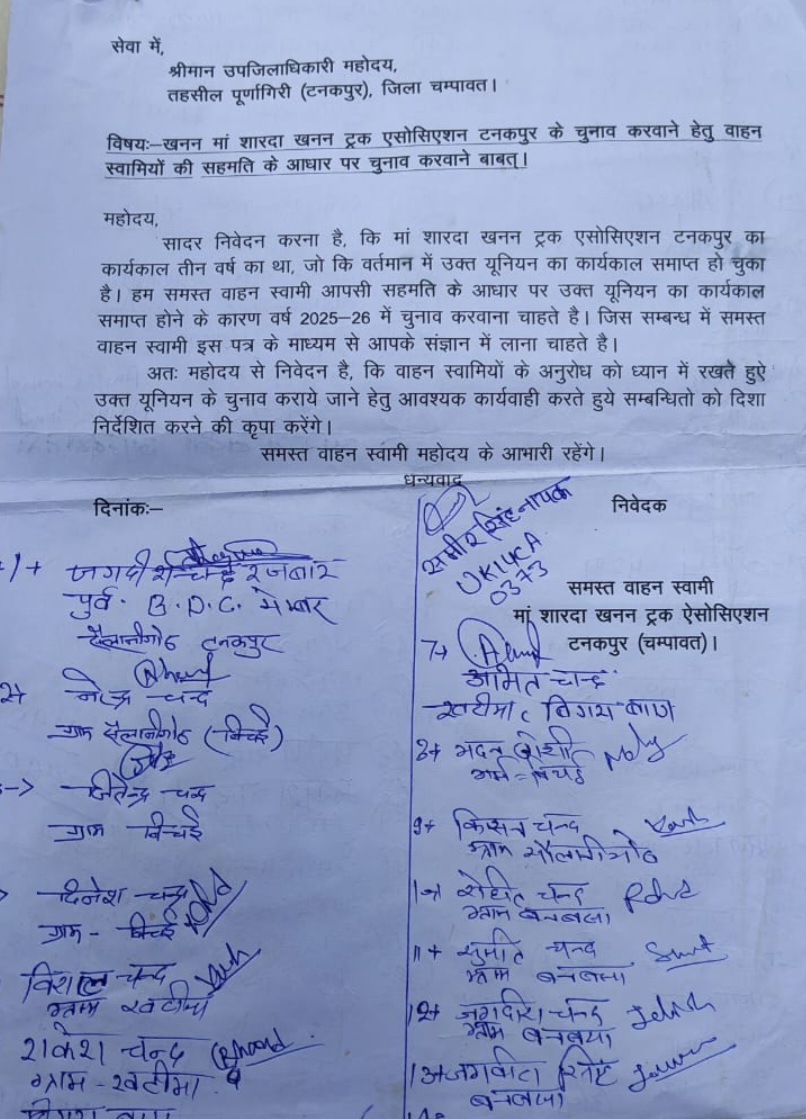 सेवा में,
श्रीमान उपजिलाधिकारी महोदय,
तहसील पूर्णागिरी (टनकपुर), जिला चम्पावत।
विषयः–खनन मां शारदा खनन ट्रक एसोसिएशन टनकपुर के चुनाव करवाने हेतु वाहन
स्वामियों की सहमति के आधार पर चुनाव करवाने बाबत्।
महोदय,
सादर निवेदन करना है, कि मां शारदा खनन ट्रक एसोसिएशन टनकपुर का
कार्यकाल तीन वर्ष का था, जो कि वर्तमान में उक्त यूनियन का कार्यकाल समाप्त हो चुका
है। हम समस्त वाहन स्वामी आपसी सहमति के आधार पर उक्त यूनियन का कार्यकाल
समाप्त होने के कारण वर्ष 2025–26 में चुनाव करवाना चाहते है। जिस सम्बन्ध में समस्त
वाहन स्वामी इस पत्र के माध्यम से आपके संज्ञान में लाना चाहते है।
अतः महोदय से निवेदन है, कि वाहन स्वामियों के अनुरोध को ध्यान में रखते हुऐ
उक्त यूनियन के चुनाव कराये जाने हेतु आवश्यक कार्यवाही करते हुये सम्बन्धितो को दिशा
निर्देशित करने की कृपा करेंगे।
समस्त वाहन स्वामी महोदय के आभारी रहेंगे।
धन्यवाद
दिनांकः–
निवेदक
समस्त वाहन स्वामी
मां शारदा खनन ट्रक ऐसोसिएशन
टनकपुर (चम्पावत)।
जगदीश चन्द्र रजबार
पूर्व. B.D.C. मेम्बर
सैलानीगोठ टनकपुर
चन्द
ग्राम सैलानीगोठ (बिचई)
जितेन्द्र चन्द
ग्राम बिचई
दिनेश चन्द्र
ग्राम - बिचई
विशाल चन्द
ग्राम खटीमा
राकेश चन्द
ग्राम - खटीमा
समीर सिंह नायक
UK14CA
0373
7→
अमित चन्द
खटीमा
8→ मदन जोशी
9→ किसन चन्द
ग्राम सैलानीगोठ
रोहित चन्द Rohit
ग्राम बनबसा
11→ सुमित चन्द Sumit
ग्राम बनबसा
12→ जगदीश चन्द
ग्राम बनबसा
सिंह
बनबसा